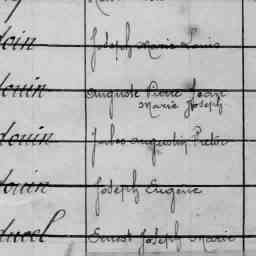 doin Joseph Marie Louis
douin Auguste Pierre Jean
Marie Joseph
douin Jules Augustin
douin Joseph Eugène
ducel Ernest Joseph Marie